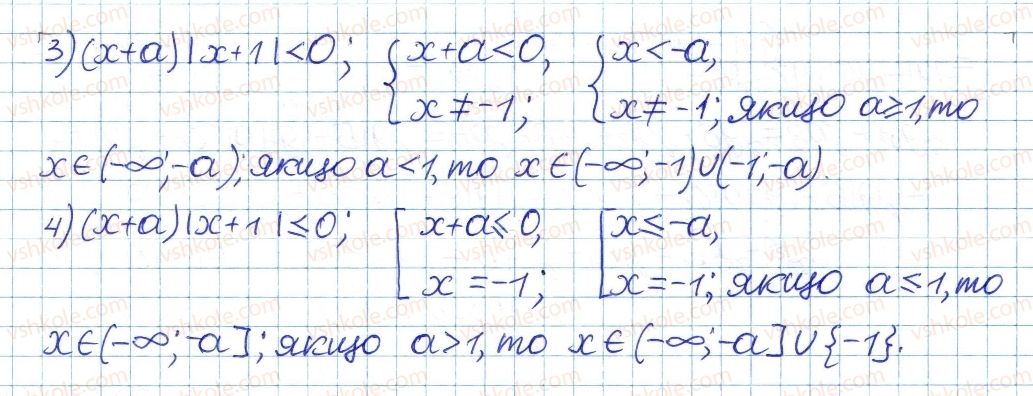 3) (x+a)|x+1|<0; { x+a<0, x≠-1; { x<-a, x≠-1; якщо a≥1, то
x∈(-∞;-a); якщо a<1, то x∈(-∞;-1)∪(-1;-a).
4) (x+a)|x+1|≤0; [ x+a≤0, x=-1; [ x≤-a, x=-1; якщо a≤1, то
x∈(-∞;-a]; якщо a>1, то x∈(-∞;-a]∪{-1}.